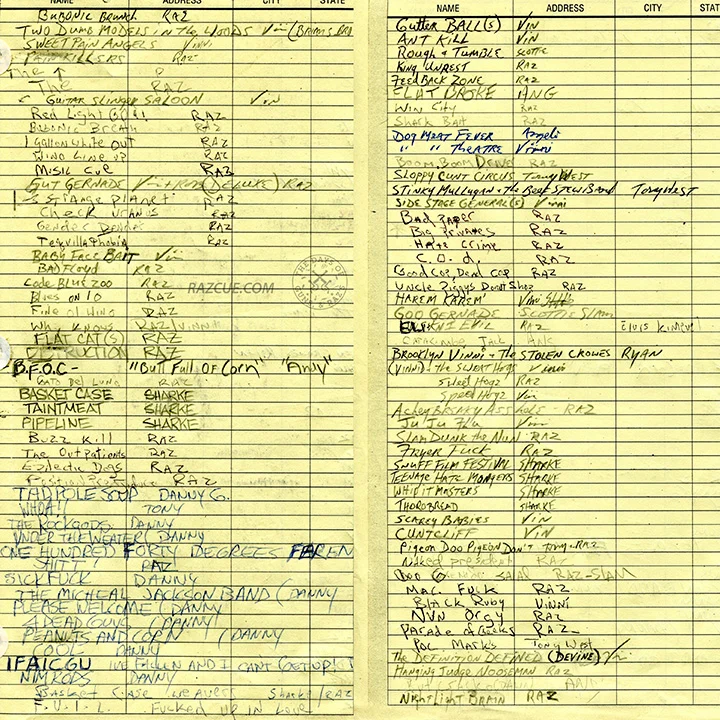 NAME ADDRESS CITY STATE
BUBONIC Brunch RAZ
TWO DUMB MODELS in the WOODS Vin
SWEET PAIN ANGELS Vinni
PAIN KILLERS RAZ
The
The RAZ
GUITAR SLINGER SALOON Vin
Red Light RAZ
Bubonic Breath RAZ
1 gallon white out RAZ
Wino Line up RAZ
Music cue RAZ
GUT GERNADE Vin + RAZ (DELUXE) RAZ
Strange planet RAZ
Check uranus RAZ
Gender RAZ
Tequillaphobia RAZ
BABY FACE BAIT Vin
BAD FLOYD RAZ
Code Blue Zoo RAZ
Blues on 10 RAZ
Fine ol Wino RAZ
Who Knows RAZ/VINNI
FLAT CAT(S) RAZ
DISTRUCTION RAZ
B.F.O.C- "Butt Full OF Corn" "Andy"
RAZ
BASKET CASE SHARKE
TAINTMEAT SHARKE
PIPELINE SHARKE
Buzz Kill RAZ
The Outpatients RAZ
Epileptic Dogs RAZ
RAZ
TADPOLE SOUP DANNY G.
WHOA!! TONY
THE KOCKGODS DANNY
UNDER THE WEATER (DANNY
ONE HUNDRED FORTY DEGREES FAREN
SHIT! RAZ
SICK FUCK DANNY
THE MICHEAL JACKSON BAND (DANNY
PLEASE WELCOME (DANNY
4 DEAD GUYS (DANNY
PEANUTS AND CORN (DANNY
COOL DANNY
IFAICGU IVE FALLEN AND I CANT (GET UP)
NIMRODS DANNY
Basket Case Weavers Sharke/RAZ
F.U.I.L. FUCKED UP IN LOVE
THE DAYS OF
RAZCUE.COM
NAME ADDRESS CITY STAT
Gutter BALL(S) VIN
ANT KILL VIN
Rough + TUMBLE SCOTTIE
KING UNREST RAZ
FEEDBACK ZONE RAZ
FLAT BROKE ANG
Win City RAZ
Shark Bait RAZ
DOG MEAT FEVER Angelo
" " THEATRE Vinni
BOOM BOOM RAZ
SLOPPY CUNT CIRCUS Tony WEST
STINKY MULLIGAN + The BEEF STEW BAND TONY WEST
SIDE STAGE GENERAL(S) Vinni
Bad Paper RAZ
Big Privates RAZ
Hate Crime RAZ
C.O.d. RAZ
Good Cop Dead Cop RAZ
Uncle Piggys Donut Shop RAZ
HAREM KAREM Vinni
GOO GERNADE SCOTTIE SLAM
KNIEVIL RAZ
BROOKLYN VINNI + The STOLEN CROWES RYAN
(VINNI) + The SWEAT HOGS Vinni
Sweet Hogz RAZ
Speed Hogz Vin
Achey Breaky Ass Hole - RAZ
Ju Ju Flu Vin
SLAM DUNK the NUN - RAZ
Fryer Fuck RAZ
SNUFF FILM FESTIVAL SHARKE
TEENAGE HATE MONGERS SHARKE
WHIP IT MASTERS SHARKE
THOROBREAD SHARKE
SCAREY BABIES VIN
CUNTCLIFF VIN
Pigeon Doo Pigeon Don't Tony + RAZ
Naked president RAZ
RAZ - SLAM
Mac. Fuck RAZ
Black Ruby VINNI
NUN Orgy RAZ
Parade of Geeks RAZ
Poc Marks Tony West
The DEFINITION DEFINED (DEVINE) Vin
HANGING Judge NOOSEMAN RAZ
NightLight BRAIN RAZ